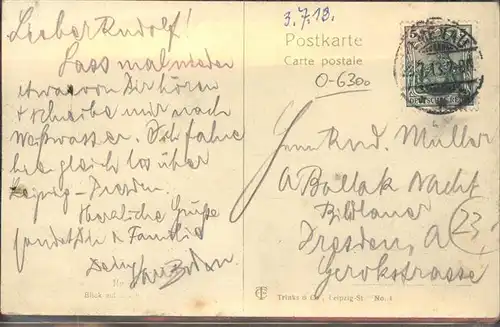 Lieber Rudolf!
Lass mal wieder
etwas von Dir hören
+ schreibe mir nach
Weißwasser. Ich fahre
gleich los über
Leipzig-Dresden.
Herzliche Grüße
sendet Dir + Familie
Dein
3.7.13.
Postkarte
Carte postale
0-6300
DEUTSCHES REICH
Herrn Rud. Müller
Nacht
Bildhauer
Dresden, A
Gerokstrasse
23
Blick auf
Trinks & Co., Leipzig-St. No. 1